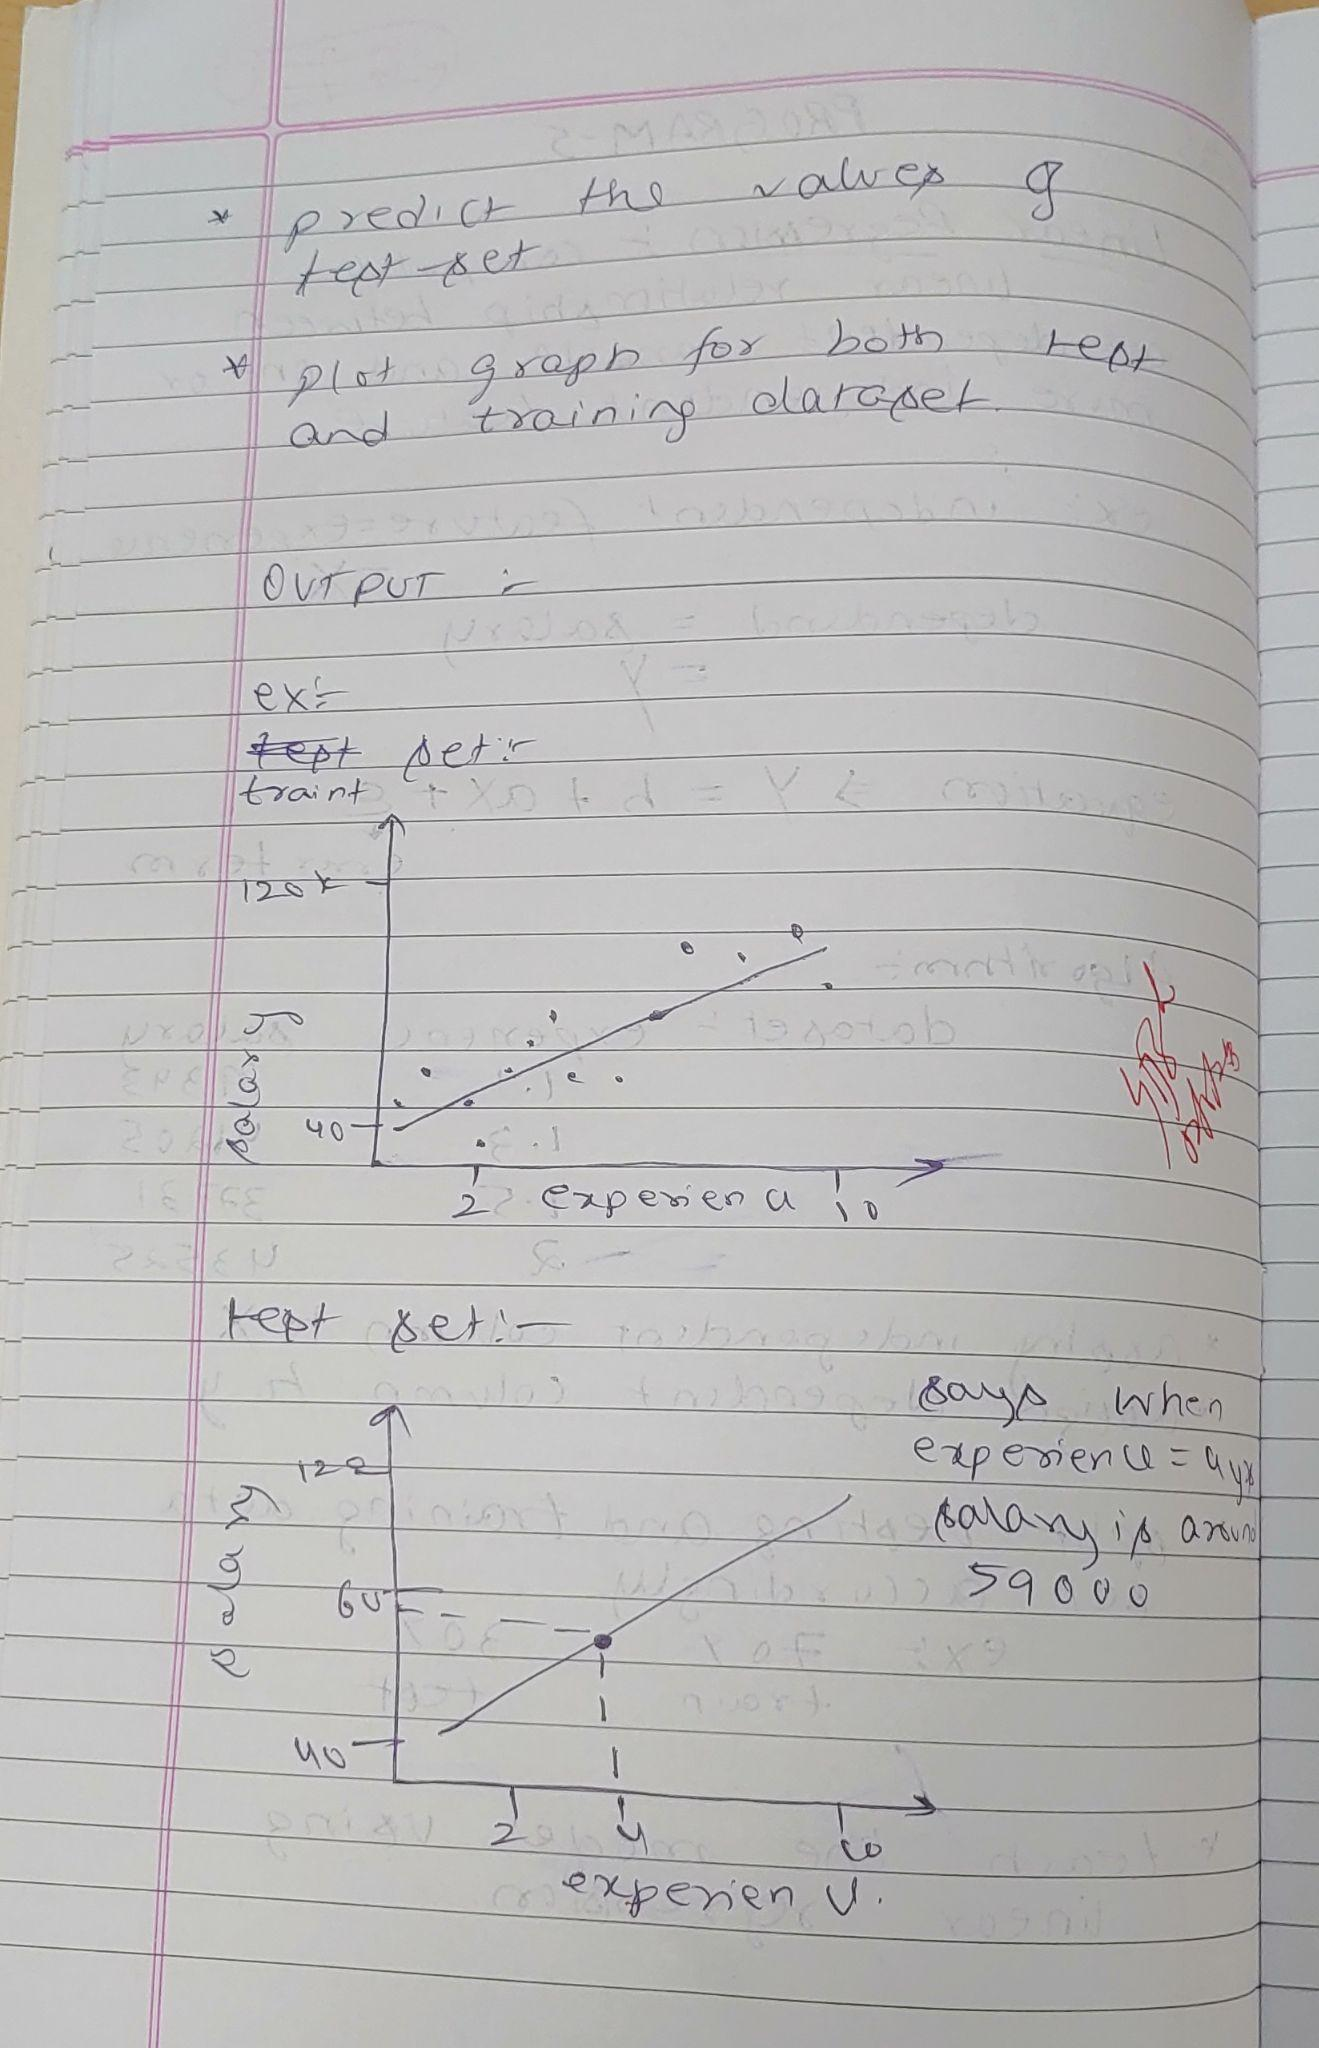 * predict the values of
test set
* plot graph for both test
and training dataset.
OUTPUT :-
ex:-
test set:-
traint
120k
salary
40
2 experience 10
test set:-
says when
experience = 4 yrs
salary is around
59000
120
salary
60
40
2 4 10
experience.